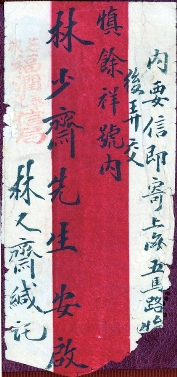 內要信即寄上海五馬路
慎餘祥號內
林少齋先生安啟
林久齋緘託